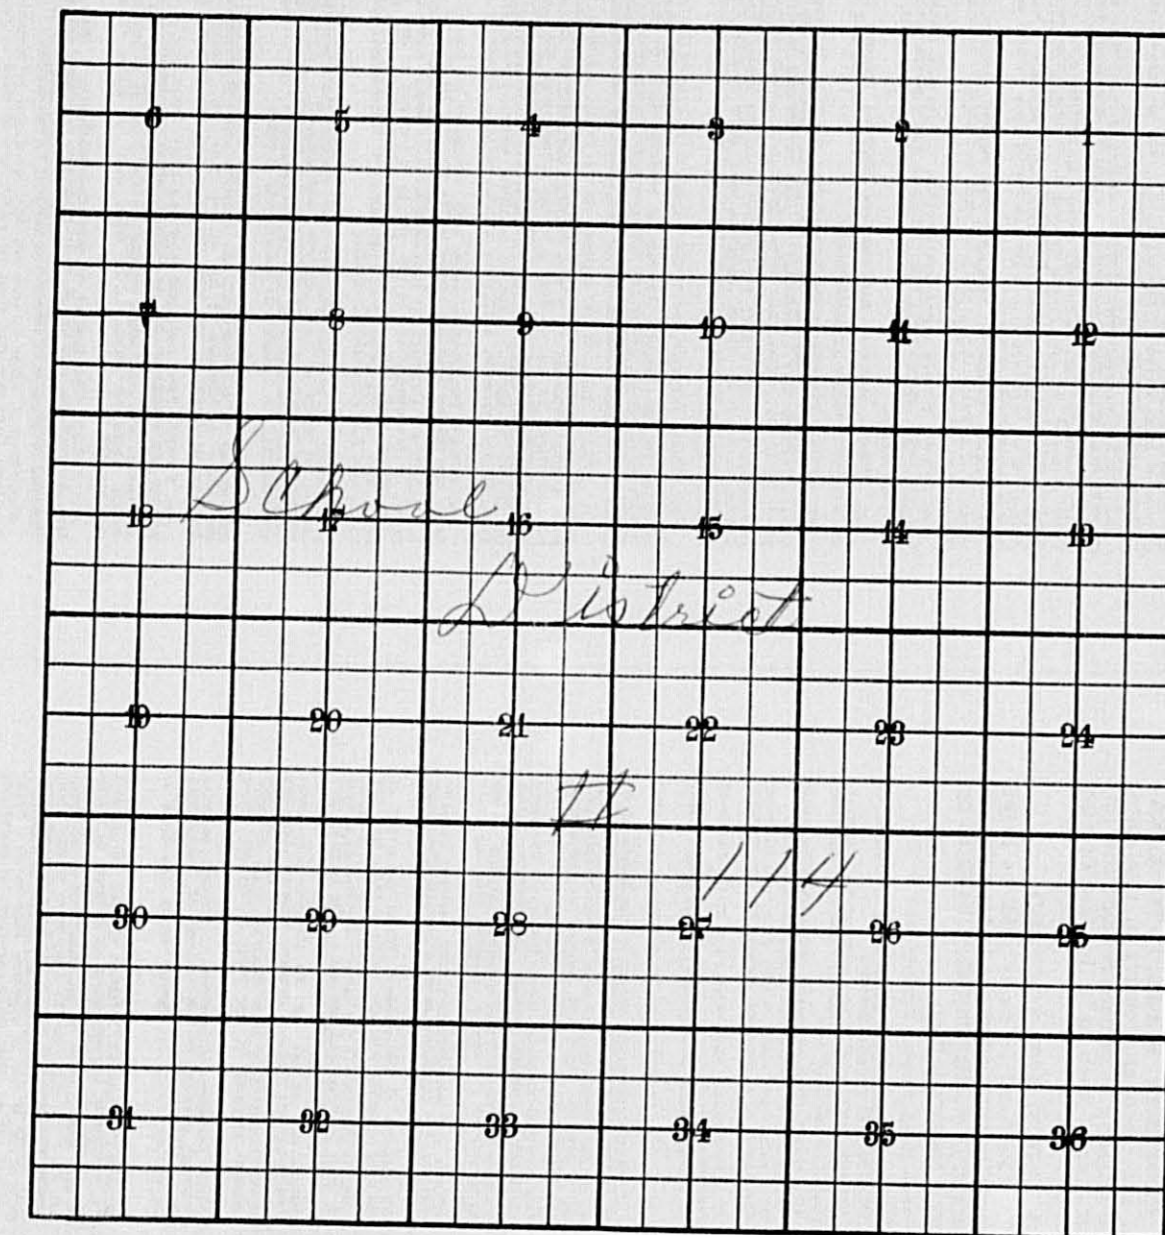 6 5 4 3 2 1
7 8 9 10 11 12
School
18 17 16 15 14 13
District
19 20 21 22 23 24
#
114
30 29 28 27 26 25
31 32 33 34 35 36